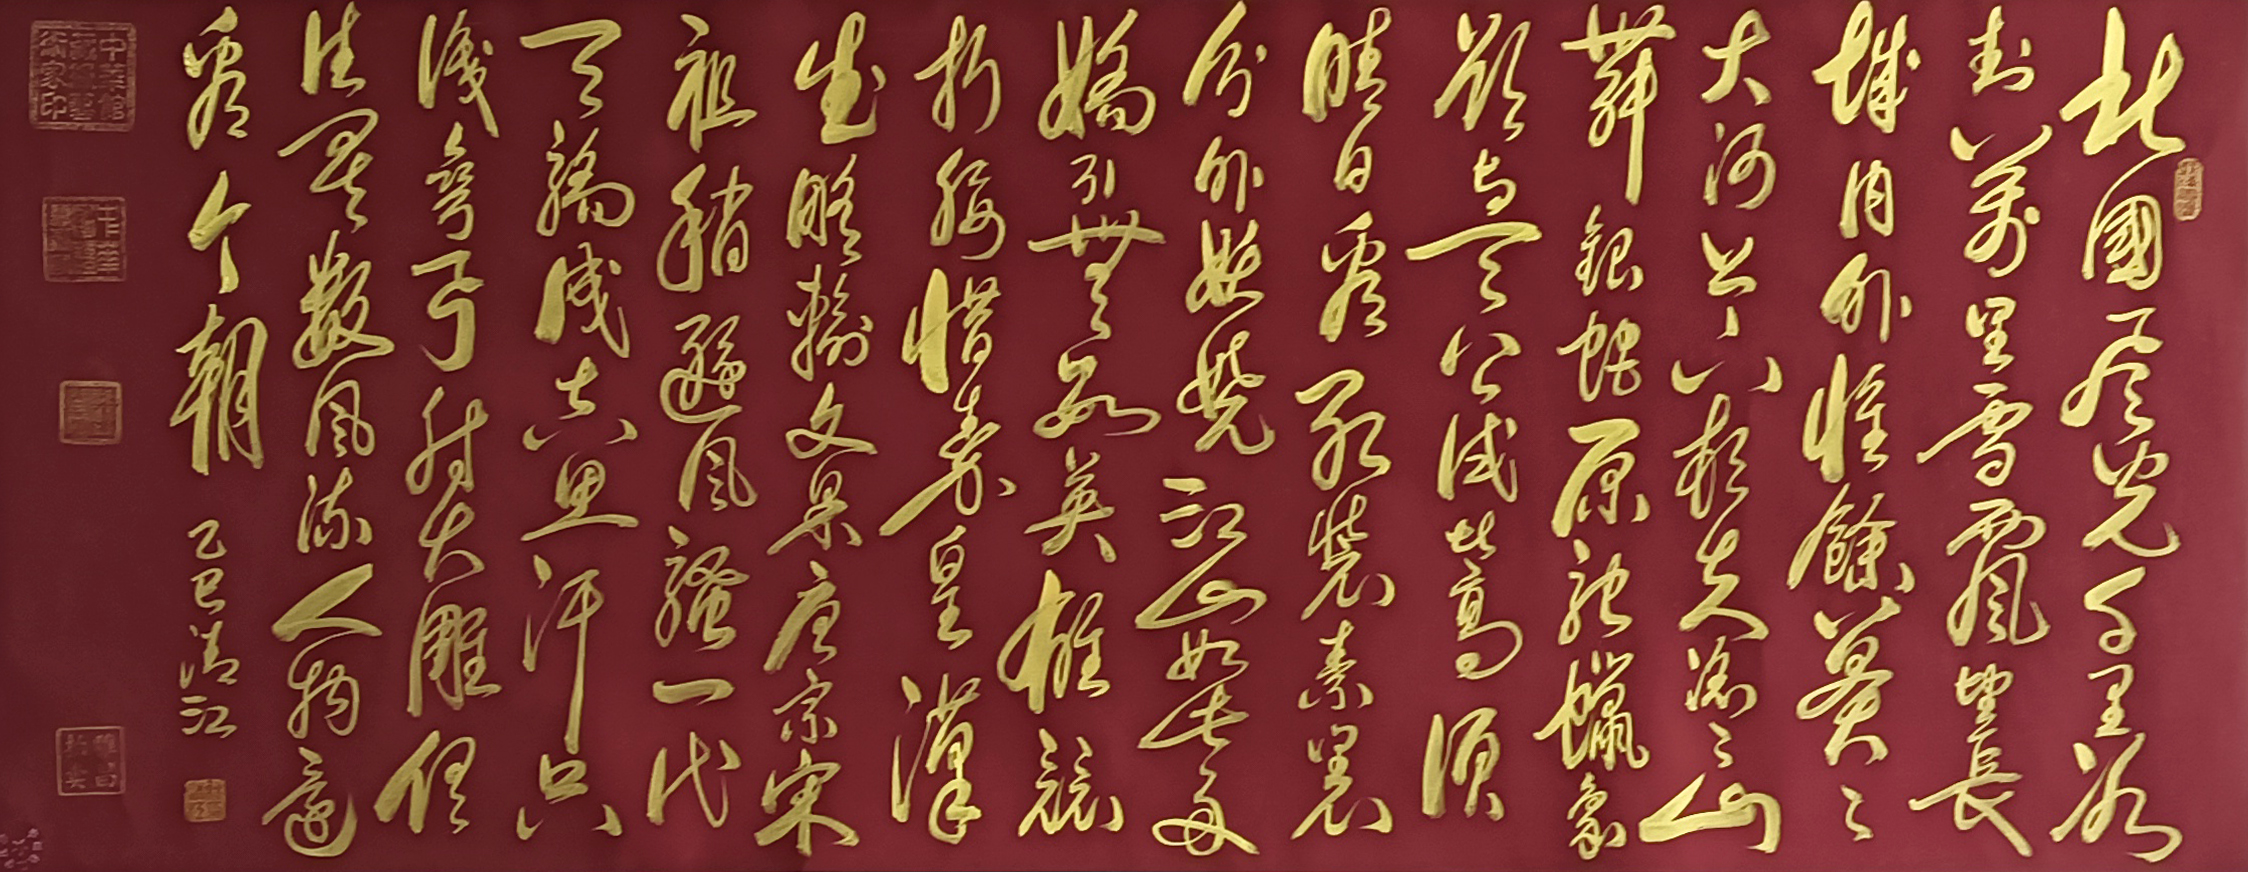 北國風光千里冰
封萬里雪飄望長
城內外惟餘莽〻
大河上下頓失滔〻山
舞銀蛇原馳蠟象
欲與天公試比高須
晴日看紅裝素裹
分外妖嬈江山如此多
嬌引無數英雄競
折腰惜秦皇漢
武略輸文采唐宗宋
祖稍遜風騷一代
天驕成吉思汗只
識彎弓射大雕俱
往矣數風流人物還
看今朝
乙巳清江
中華館藏級藝術家印